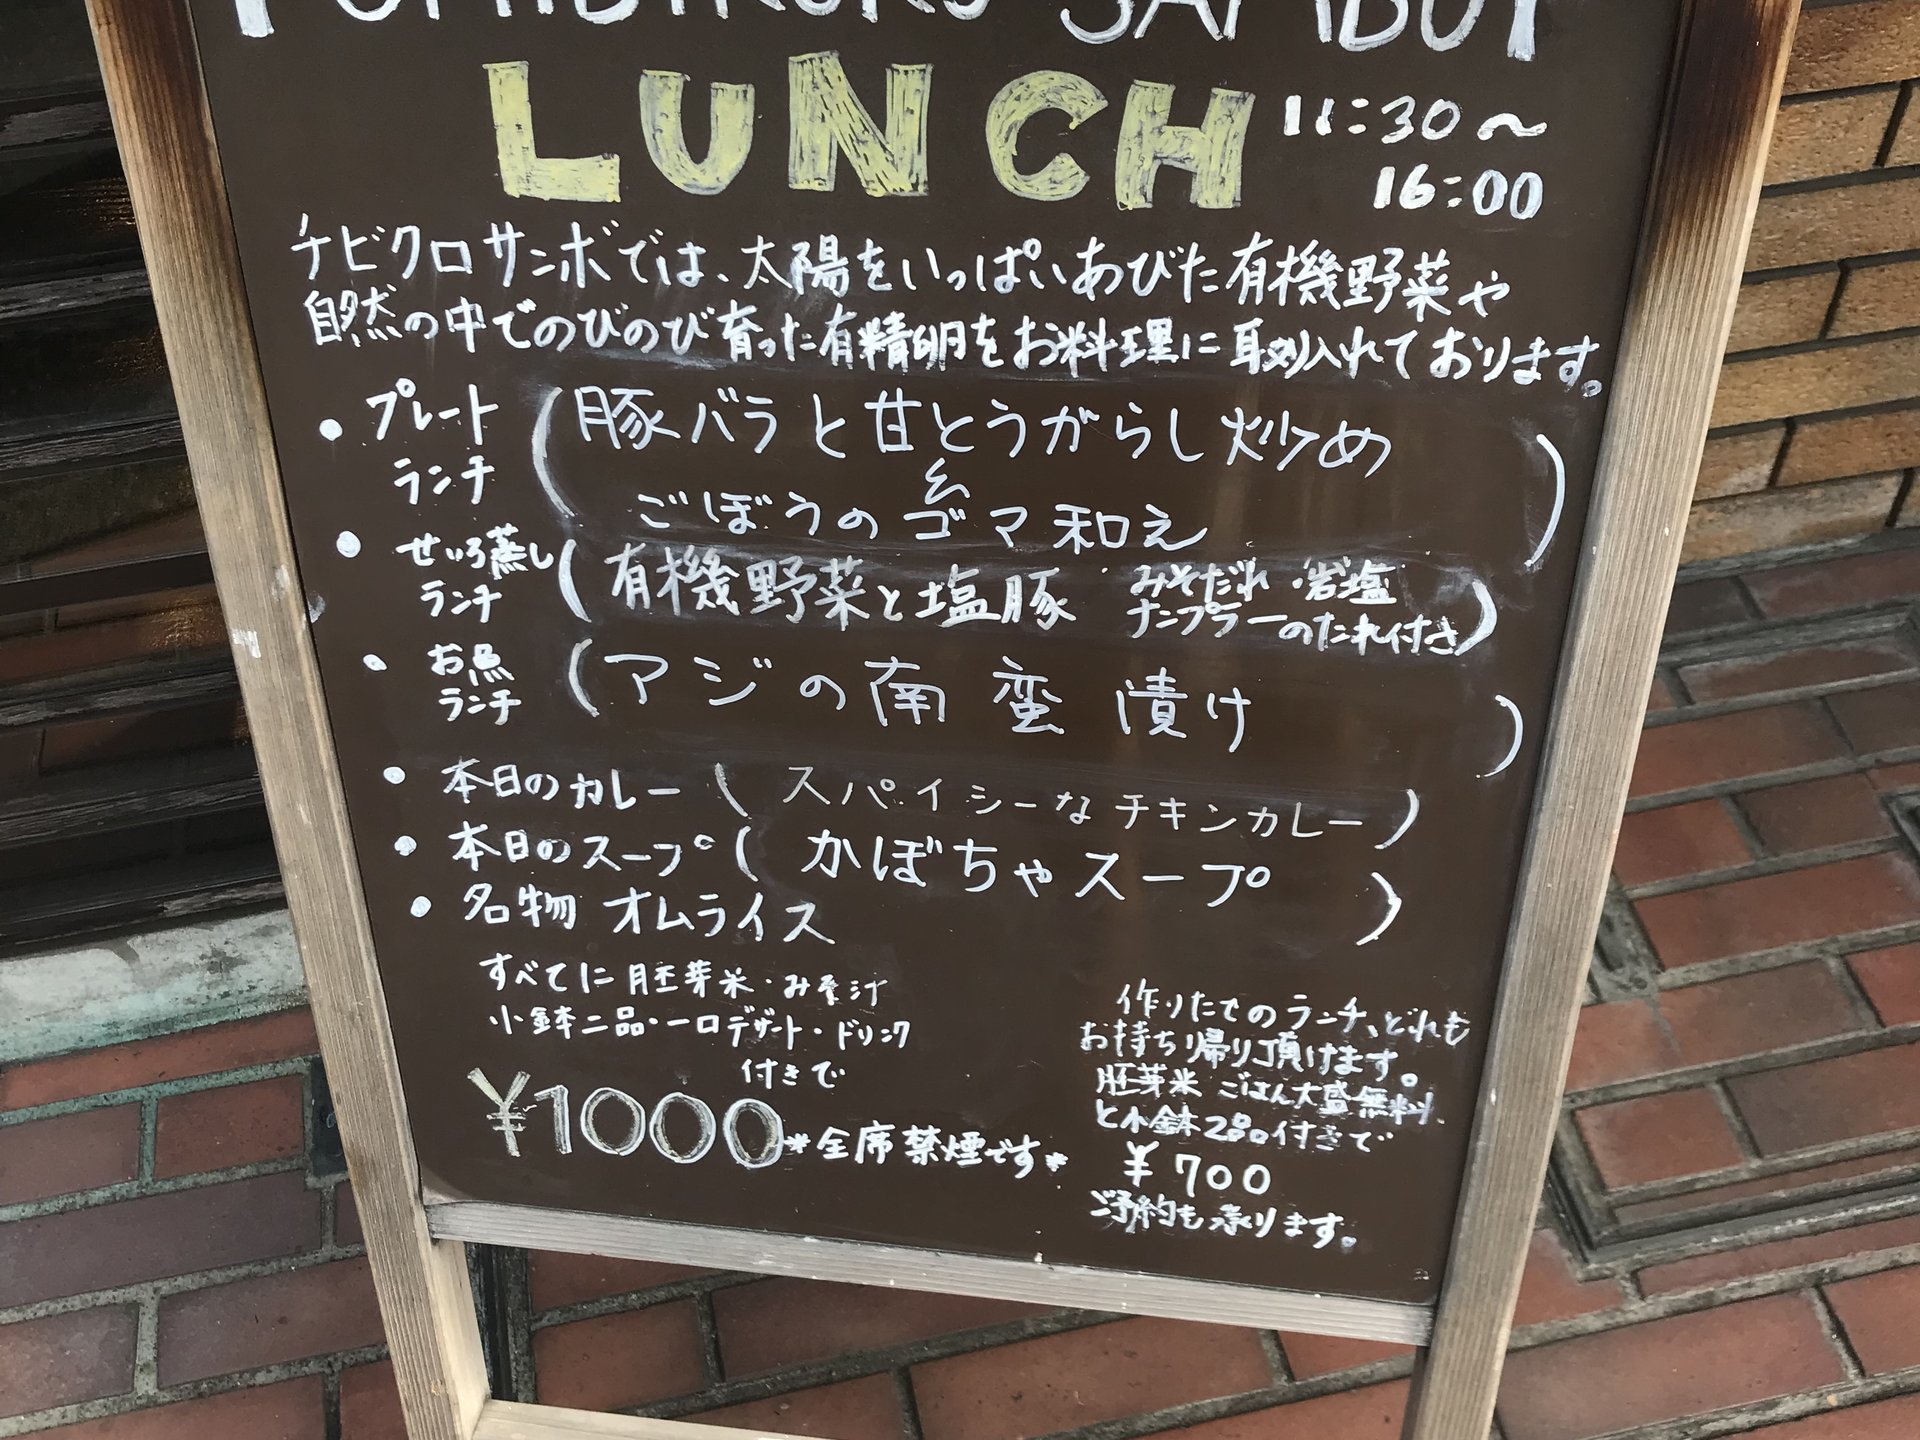 LUNCH 11:30〜
16:00
チビクロサンボでは、太陽をいっぱいあびた有機野菜や
自然の中でのびのび育った有精卵をお料理に取り入れております。
・プレートランチ(豚バラと甘とうがらし炒め
ごぼうのゴマ和え)
・せいろ蒸しランチ(有機野菜と塩豚 みそだれ・岩塩
ナンプラーのたれ付き)
・お魚ランチ(アジの南蛮漬け)
・本日のカレー(スパイシーなチキンカレー)
・本日のスープ(かぼちゃスープ)
・名物オムライス
すべてに胚芽米・みそ汁
小鉢二品・一口デザート・ドリンク
付きで
¥1000 *全席禁煙です*
作りたてのランチ、どれも
お持ち帰り頂けます。
胚芽米 ごはん大盛無料
と小鉢2品付きで
¥700
ご予約も承ります。